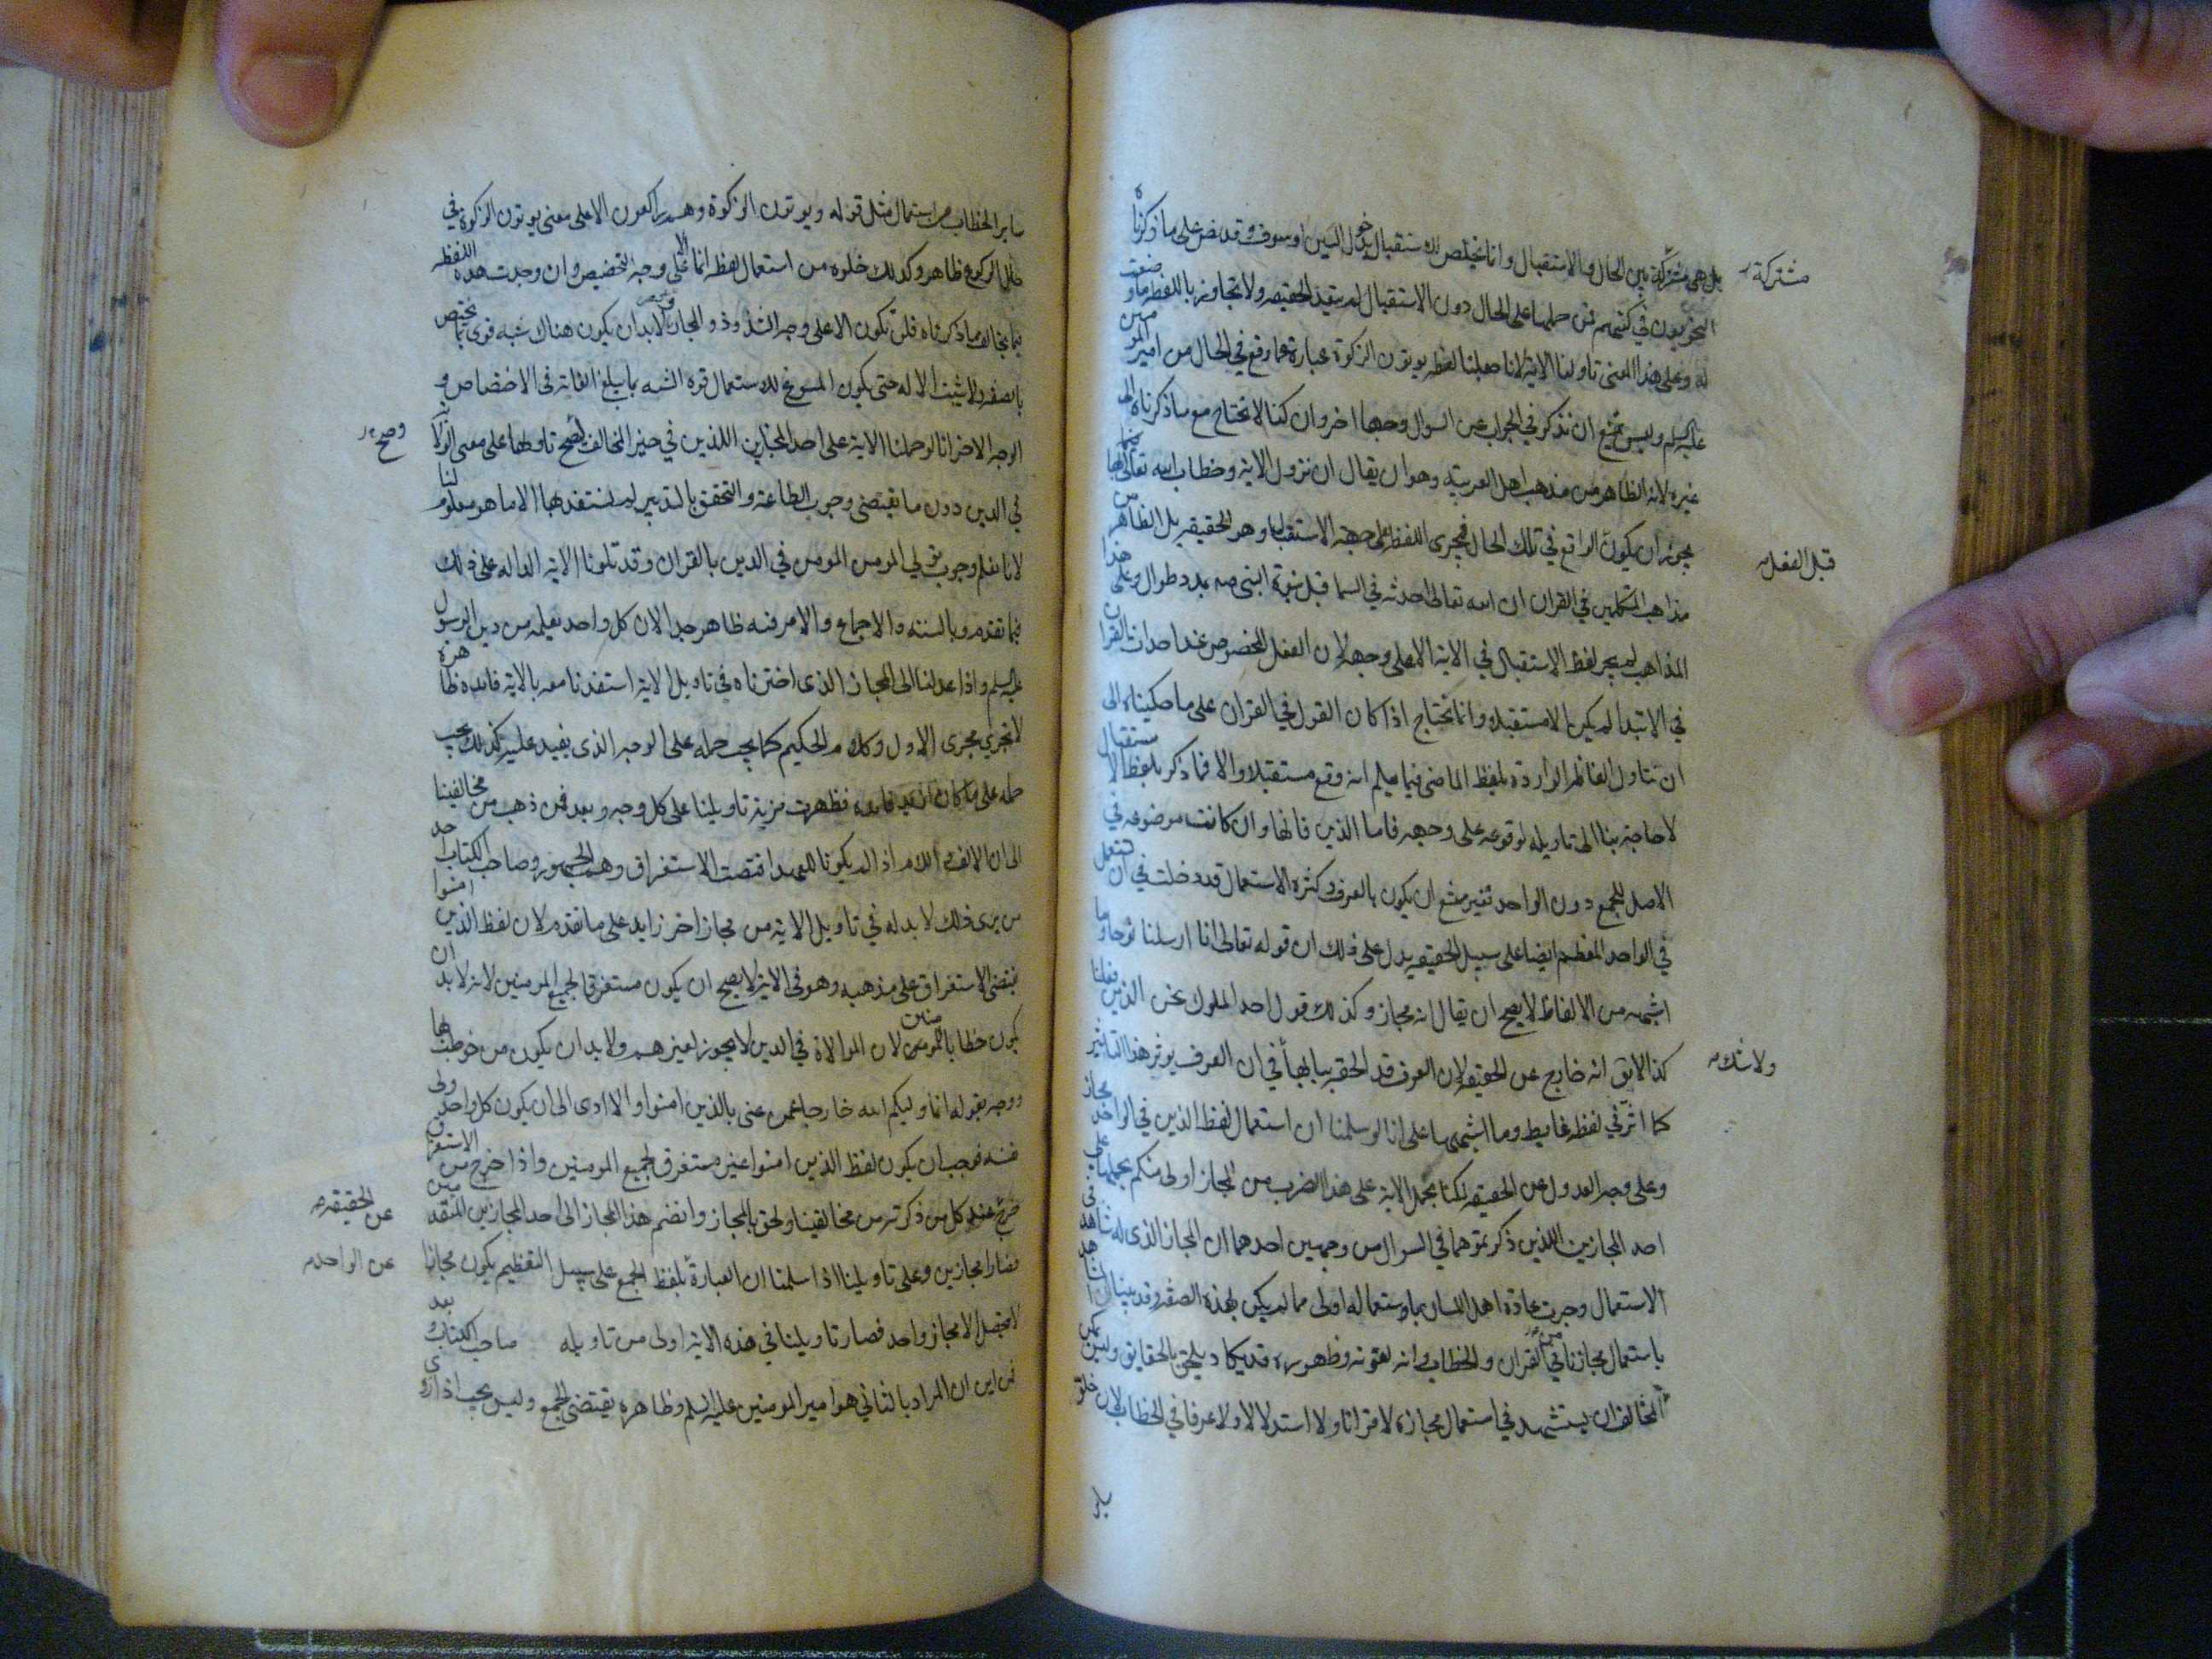 بل هي مشتركة بين الحال والاستقبال وانما يختص الاستقبال بدخول السين او سوف وقد نص على ما ذكرناه
مشتركة
النحويون في كتبهم فمن حملها على الحال دون الاستقبال لم يتعد الحقيقه ولا تجاوز باللفظه ما وضعت
له وعلى هذا المعنى تاولنا الاية لانا جعلنا لفظه يوتون الزكوة عبارة عما وقع في الحال من امير المومنين
عليه السلم وليس يمتنع ان نذكر في الجواب عن السوال وجها اخر وان كنا لا نحتاج مع ما ذكرناه الى
غيره لانه الظاهر من مذهب اهل العربية وهو ان يقال ان نزول الاية وخطاب الله تعالى بها
يجوز ان يكون الواقع في تلك الحال فجرى اللفظ على جهة الاستقبال وهو الحقيقه بل الظاهر من
قبل الفعل
مذاهب المتكلمين في القران ان الله تعالى احدثه في السما قبل نبوة النبي صم بمدد طوال وعلى هذا
المذاهب لم يجر لفظ الاستقبال في الاية الا على وجهه لان الفعل المخصوص عند احداث القران
في الابتدا لم يكن الا مستقبلا وانما نحتاج اذا كان القول في القران على ما حكيناه الى
ان نتاول الفاظه الواردة بلفظ الماضي فيما يعلم انه وقع مستقبلا والا فما ذكر بلفظ الاستقبال
لا حاجة بنا الى تاويله لوقوعه على وجهه فاما الذين فانها وان كانت موضوعه في
الاصل للجمع دون الواحد فغير ممتنع ان يكون بالعرف وكثرة الاستعمال قد دخلت في ان تستعمل
في الواحد المعظم ايضا على سبيل الحقيقه يدل على ذلك ان قوله تعالى انا ارسلنا نوحا وما
اشبهه من الالفاظ لا يصح ان يقال انه مجاز وكذلك قول احد الملوك نحن الذين فعلنا
كذا لا يق انه خارج عن الحقيقه لان العرف قد الحقه ببابها في ان العرف يوثر هذا التاثير
ولا شك
كما اثر في لفظه غايط وما اشبهها على انا لو سلمنا ان استعمال لفظ الذين في الواحد مجاز
وعلى وجه العدول عن الحقيقه لكنا بحمل الاية على هذا الضرب من المجاز اولى منكم بحملها على
احد المجازين اللذين ذكرتموهما في السوال من وجهين احدهما ان المجاز الذي له شاهد في
الاستعمال وجرت عادة اهل اللسان باستعماله اولى مما لم يكن بهذه الصفة وقد بينا الشاهد
باستعمال مجازنا في القران والخطاب وانه لقوته وظهوره قد يكاد يلحق بالحقايق وليس يمكن
المخالف ان يستشهد في استعمال مجازه لا قرانا ولا استدلالا ولا عرفا في الخطاب لان خلو
ساير الخطاب من استعمال مثل قوله ويوتون الزكوة وهم راكعون الا على معنى يوتون الزكوة في
حال الركوع ظاهر وكذلك خلوه من استعمال لفظه انما الا على وجه التخصيص وان وجدت هذه اللفظه
فيما يخالف ما ذكرناه فلن تكون الا على وجه الشذوذ والمجاز ولابد ان يكون هناك شبه قوى بما يختص
بالصفة ولا يثبت الا له حتى يكون المسوغ للاستعمال قوة الشبه بما يبلغ الغاية في الاختصاص و
الوجه الاخر انا لو حملنا الاية على احد المجازين اللذين في حيز المخالف ليصح تاولها على معنى الولاية
وصح
في الدين دون ما يقتضي وجوب الطاعة والتحقق بالتدبير لم نستفد بها الا ما هو معلوم لنا
لانا نعلم وجوب تولي المومن المومن في الدين بالقران وقد تلونا الاية الداله على ذلك
فيما تقدم وبالسنة والاجماع والامر فيه ظاهر جدا لان كل واحد يعلمه من دين الرسول
عليه السلم واذا عدلنا الى المجاز الذي اخترناه في تاويل الاية استفدنا معه بالاية فايدة ظاهرة
لا تجري مجرى الاول وكلام الحكيم كما يجب حمله على الوجه الذي يفيد عليه كذلك يجب
حمله على ما كان ازيد فايده فظهرت مزية تاويلنا على كل وجه وبعد فمن ذهب من مخالفينا
الى ان الالف واللام اذا لم يكونا للعهد اقتضت الاستغراق وهم الجمهور وصاحب الكتاب احد
من يرى ذلك لا بد له في تاويل الاية من مجاز اخر زايد على ما تقدم لان لفظ الذين امنوا
يقتضي الاستغراق على مذهبه وهو في الاية لا يصح ان يكون مستغرقا لجميع المومنين لانه لا بد ان
يكون خطابا للمومنين لان الموالاة في الدين لا يجوز لغيرهم ولا بد ان يكون من خوطب بها
ووجه بقوله انما وليكم الله خارجا عمن عنى بالذين امنوا والا ادى الى ان يكون كل واحد ولى
نفسه فوجب ان يكون لفظ الذين امنوا غير مستغرق لجميع المومنين واذا خرج من الاستغراق
خرج عند كل من ذكرته من مخالفينا ولحق بالمجاز وانضم هذا المجاز الى احد المجازين المتقدمين
عن الحقيقه
فصارا مجازين وعلى تاويلنا اذا سلمنا ان العبارة بلفظ الجمع على سبيل التعظيم يكون مجازا
عن الواحد
لا يحصل الا مجاز واحد فصار تاويلنا في هذه الاية اولى من تاويله صاحب الكتاب وبعد
فمن اين ان المراد بالثاني هو امير المومنين عليه السلم وظاهره يقتضي الجمع وليس يجب اذا روى